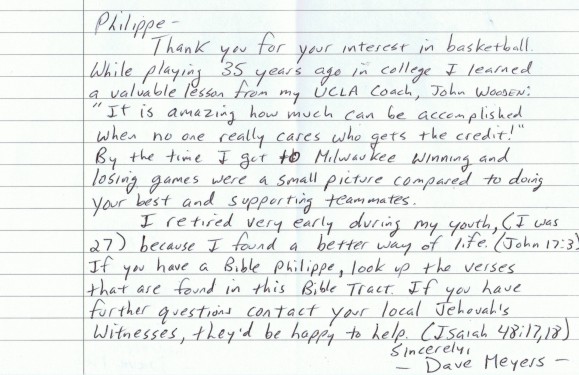 Philippe -
Thank you for your interest in basketball.
While playing 35 years ago in college I learned
a valuable lesson from my UCLA Coach, John Wooden:
"It is amazing how much can be accomplished
when no one really cares who gets the credit!"
By the time I got to Milwaukee winning and
losing games were a small picture compared to doing
your best and supporting teammates.
I retired very early during my youth, (I was
27) because I found a better way of life. (John 17:3)
If you have a Bible Philippe, look up the verses
that are found in this Bible Tract. If you have
further questions contact your local Jehovah's
Witnesses, they'd be happy to help. (Isaiah 48:17,18)
Sincerely,
- Dave Meyers -